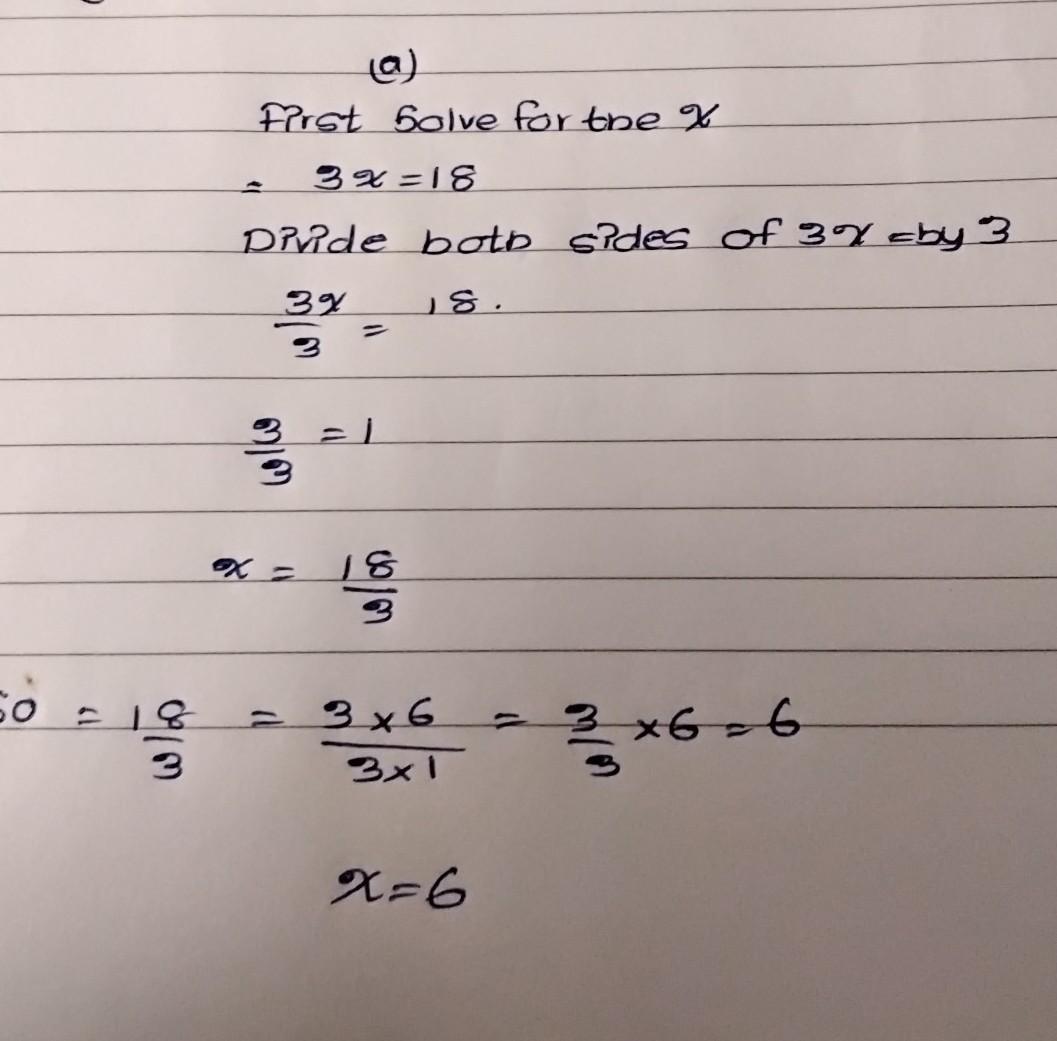 (a)
First Solve for the x
= 3x = 18
Divide both sides of 3x = by 3
3x/3 = 18.
3/3 = 1
x = 18/3
So = 18/3 = 3x6/3x1 = 3/3 x6 = 6
x=6